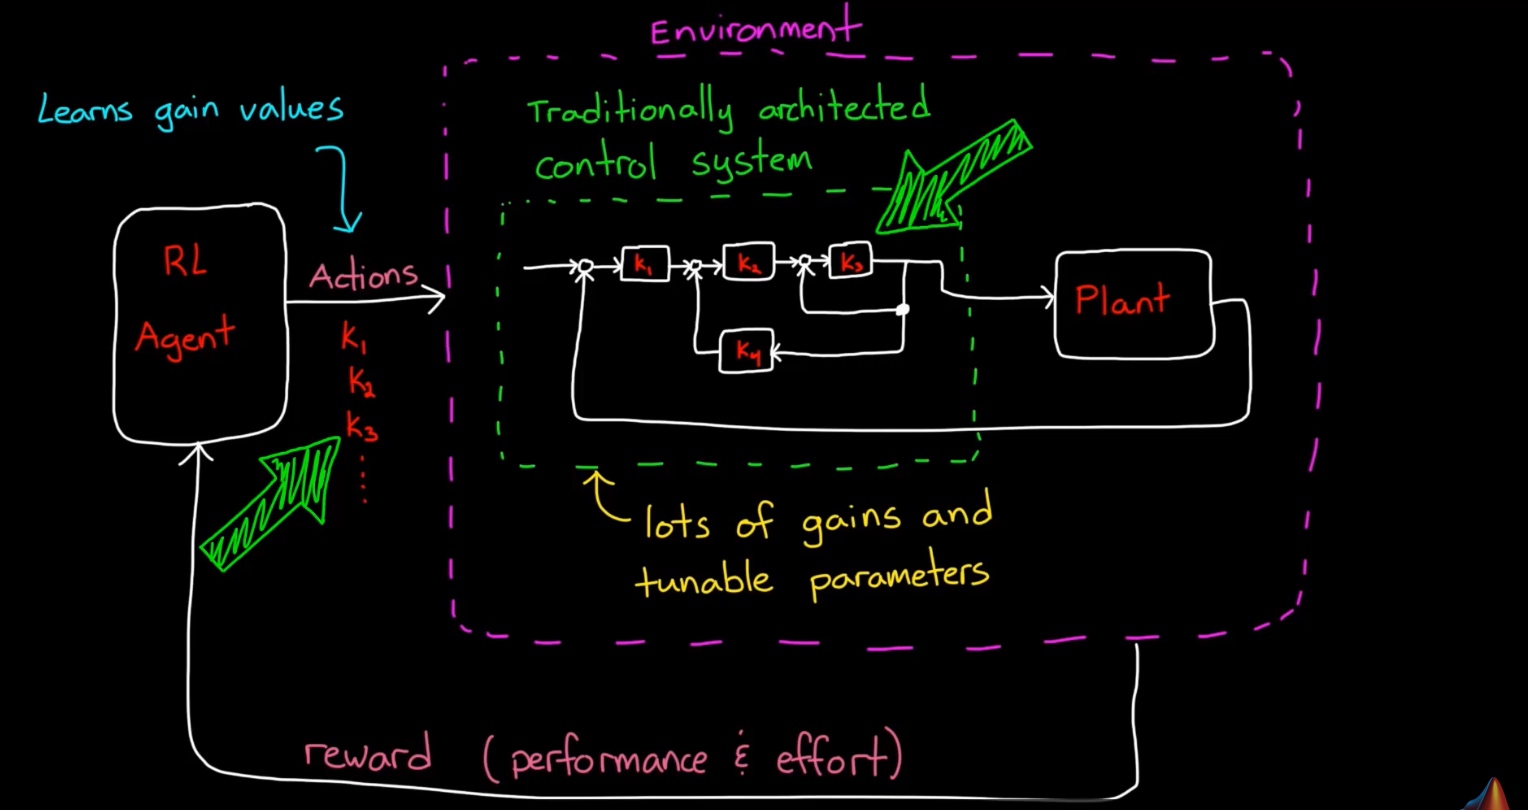 Environment
Learns gain values
Traditionally architected
control system
RL
Agent
Actions
K₁
K₂
K₃
K₁
K₂
K₃
K₄
Plant
lots of gains and
tunable parameters
reward (performance & effort)